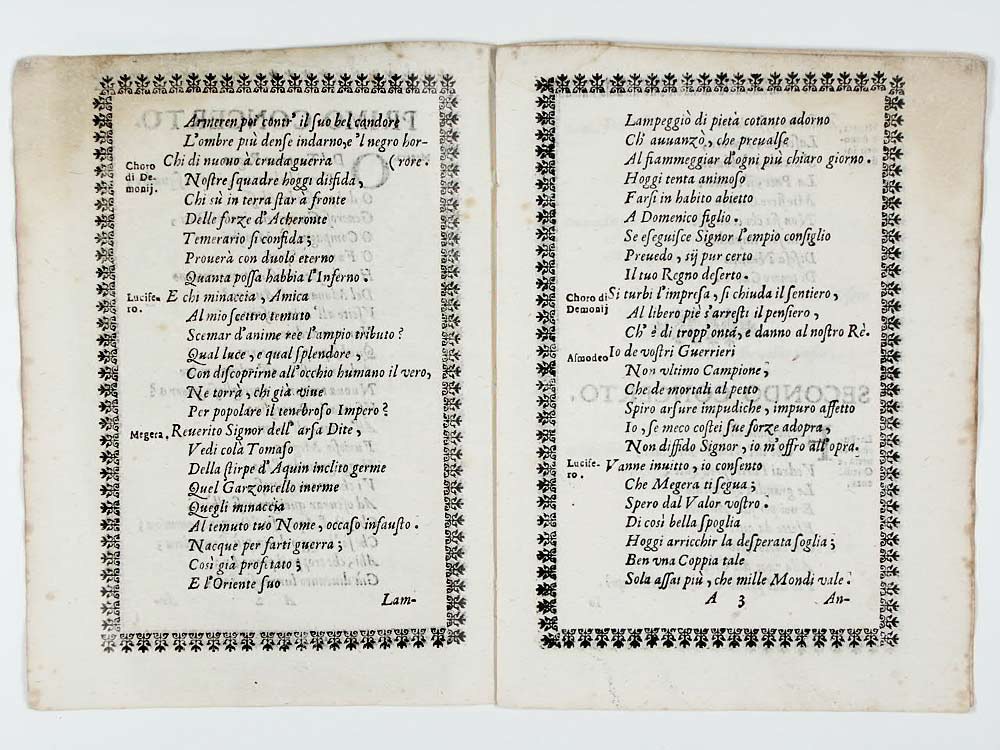 Armeren poi contr' il suo bel candore
L'ombre più dense indarno, e 'l negro hor-
Choro di Demonij. Chi di nuouo à cruda guerra (rore.
Nostre squadre hoggi disfida,
Chi sù in terra star à fronte
Delle forze d'Acheronte
Temerario si confida;
Prouerà con duolo eterno
Quanta possa habbia l'Inferno.
Lucife-ro. E chi minaccia, Amica
Al mio scettro temuto
Scemar d'anime ree l'ampio tributo?
Qual luce, e qual splendore,
Con discoprirne all'occhio humano il vero,
Ne torrà, chi già viue
Per popolare il tenebroso Impero?
Megera. Reuerito Signor dell' arsa Dite,
Vedi colà Tomaso
Della stirpe d'Aquin inclito germe
Quel Garzoncello inerme
Quegli minaccia
Al temuto tuo Nome, occaso infausto.
Nacque per farti guerra;
Così già profetato;
E l'Oriente suo
Lam-
Lampeggiò di pietà cotanto adorno
Ch' auuanzò, che preualse
Al fiammeggiar d'ogni più chiaro giorno.
Hoggi tenta animoso
Farsi in habito abietto
A Domenico figlio.
Se eseguisce Signor l'empio consiglio
Preuedo, sij pur certo
Il tuo Regno deserto.
Choro di Demonij Si turbi l'impresa, si chiuda il sentiero,
Al libero piè s'arresti il pensiero,
Ch' è di tropp'onta, e danno al nostro Rè.
Asmodeo Io de vostri Guerrieri
Non vltimo Campione,
Che de mortali al petto
Spiro arsure impudiche, impuro affetto
Io, se meco costei sue forze adopra,
Non diffido Signor, io m'offro all'opra.
Lucife-ro. Vanne inuitto, io consento
Che Megera ti segua;
Spero dal Valor vostro.
Di così bella spoglia
Hoggi arricchir la desperata soglia;
Ben vna Coppia tale
Sola assai più, che mille Mondi vale.
A 3 An-